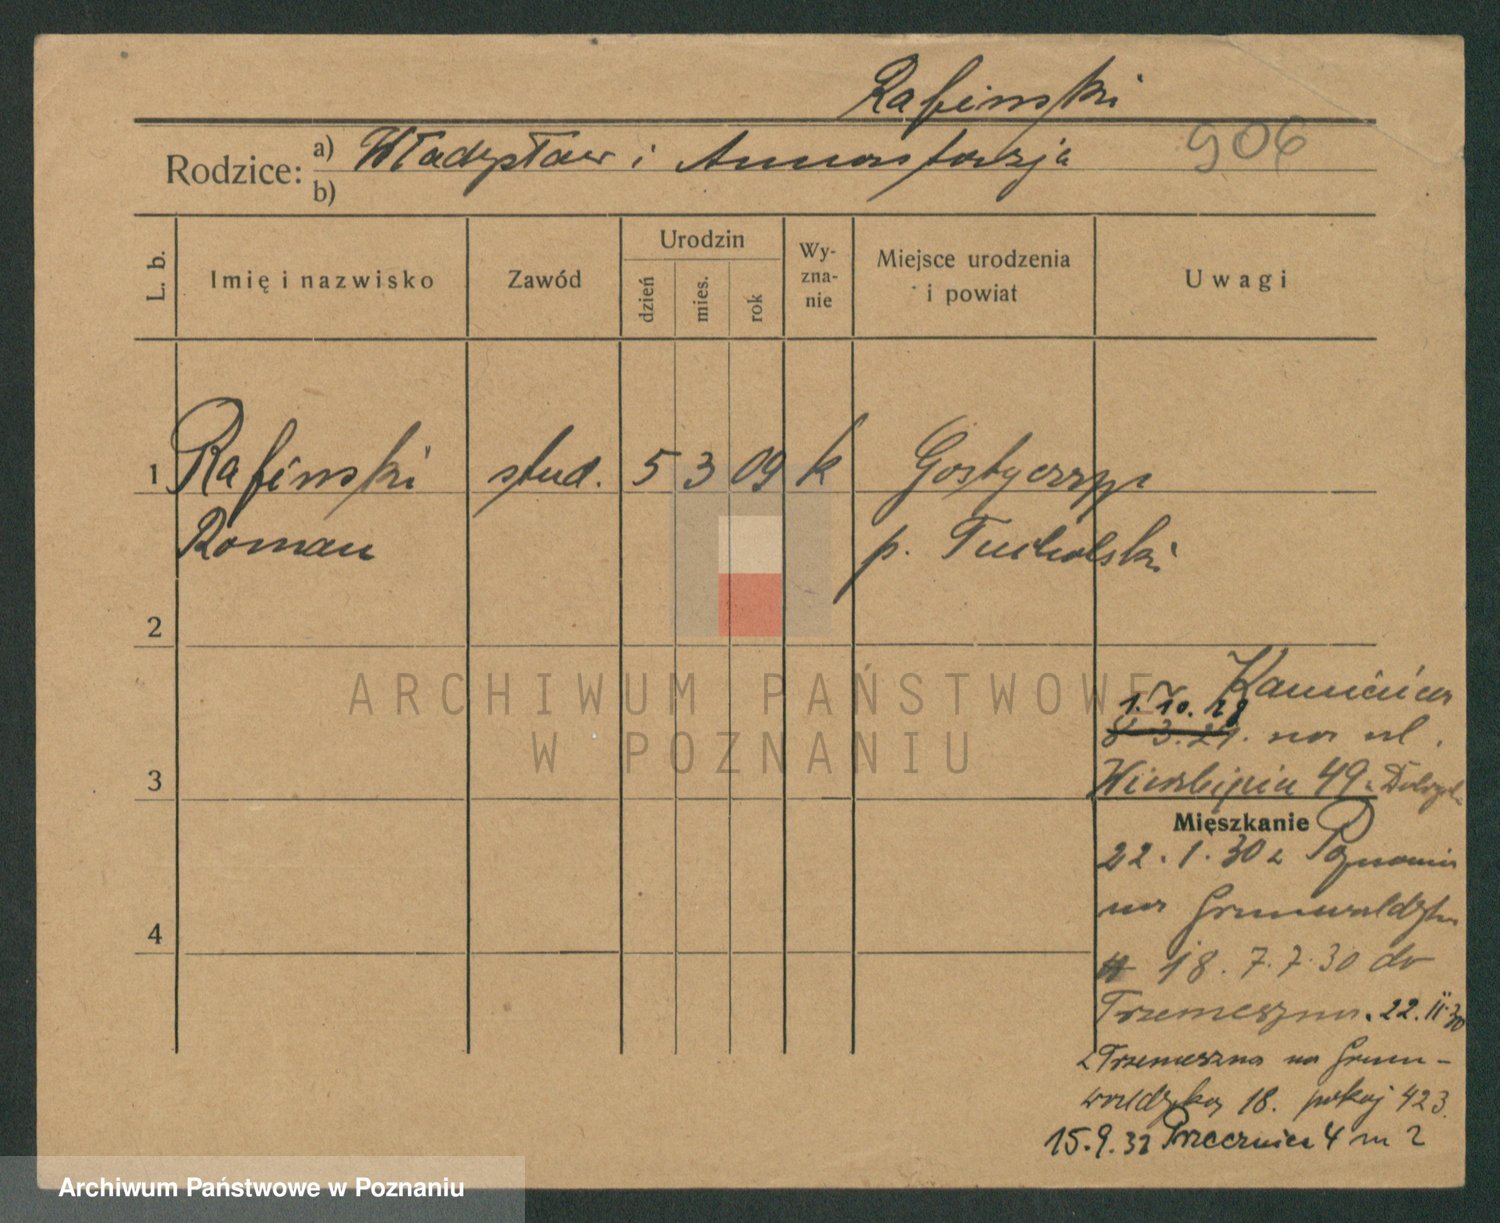 Rafinski
Rodzice: a) Władysław i Annastazja 906
b)
L. b. Imię i nazwisko Zawód Urodzin dzień mies. rok Wy-zna-nie Miejsce urodzenia i powiat Uwagi
1 Rafinski stud. 5 3 09 k Gostyczyn
Roman p. Tucholski
2
1.10.29
8 3.29. na ul.
3 49
Mieszkanie
22.1.30 z Poznania
na Grunwaldzka
4 18. 7.7.30 do
Trzemeszna. 22.II.30
z Trzemeszna na Grun-
waldzką 18. pokój 423.
15.9.32 4 m 2
ARCHIWUM PAŃSTWOWE
W POZNANIU
Archiwum Państwowe w Poznaniu